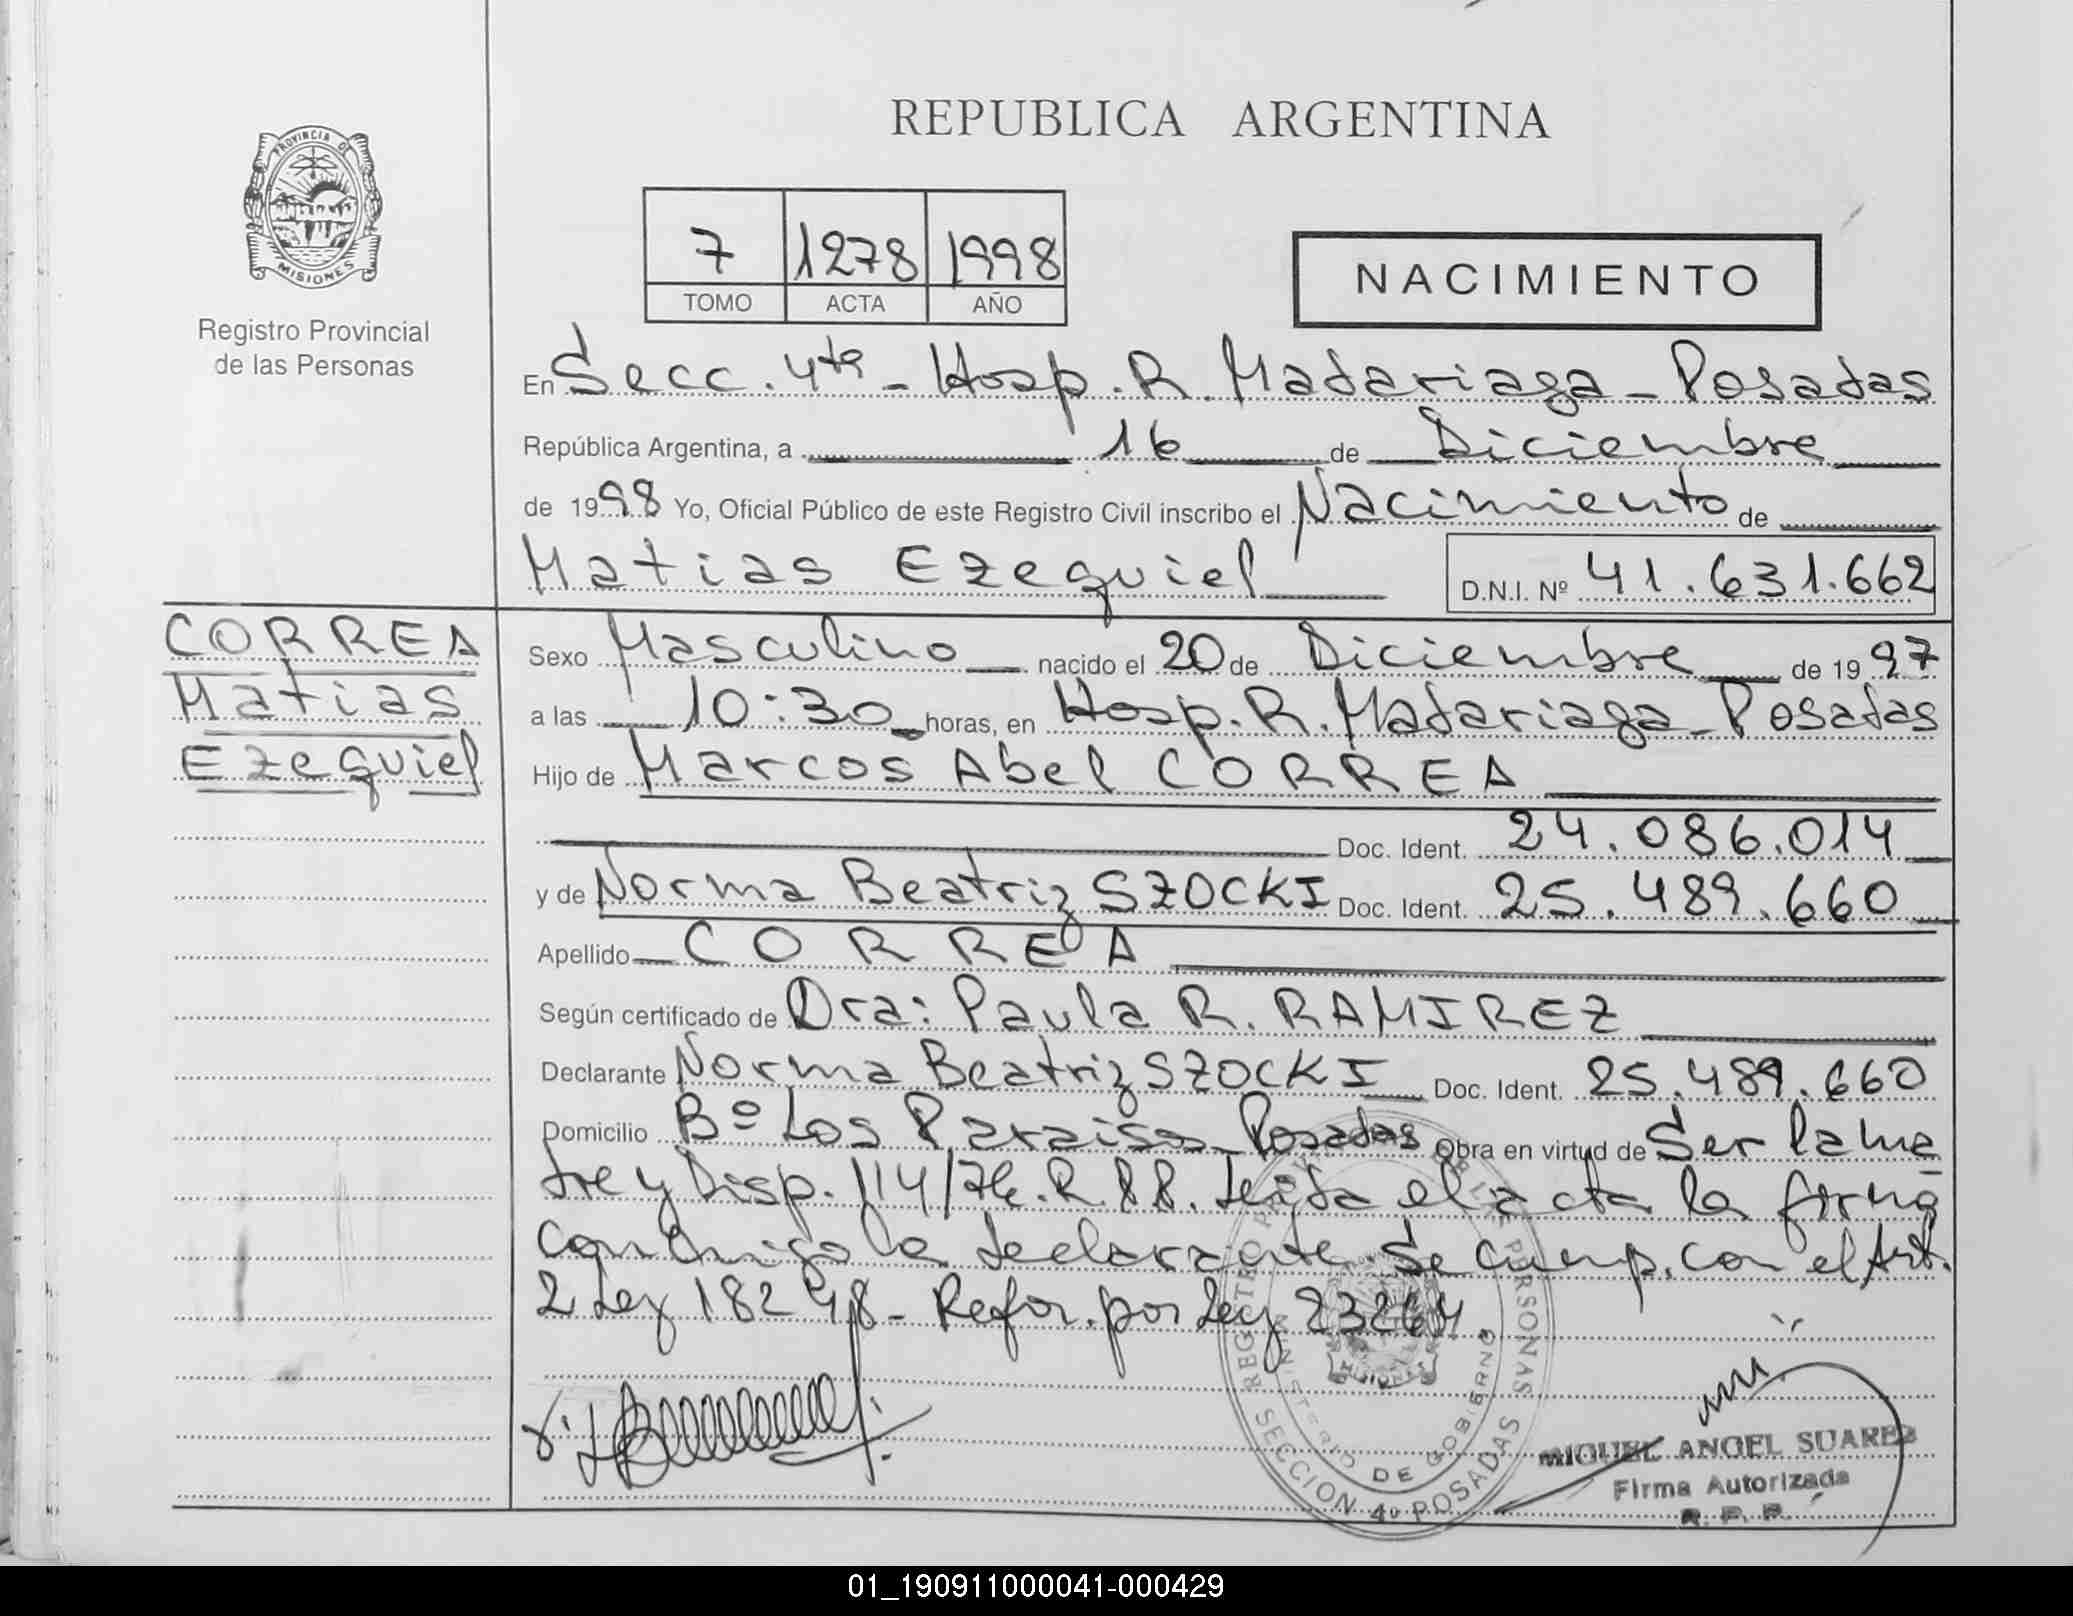 REPUBLICA ARGENTINA
PROVINCIA DE
MISIONES
Registro Provincial
de las Personas
7 1278 1998
TOMO ACTA AÑO
NACIMIENTO
En Secc. 4ta - Hosp. R. Madariaga - Posadas
República Argentina, a 16 de Diciembre
de 1998 Yo, Oficial Público de este Registro Civil inscribo el Nacimiento de
Matias Ezequiel D.N.I. Nº 41.631.662
CORREA
Matias
Ezequiel
Sexo Masculino nacido el 20 de Diciembre de 1997
a las 10:30 horas, en Hosp. R. Madariaga - Posadas
Hijo de Marcos Abel CORREA
Doc. Ident. 24.086.014
y de Norma Beatriz SZOCKI Doc. Ident. 25.489.660
Apellido CORREA
Según certificado de Dra: Paula R. RAMIREZ
Declarante Norma Beatriz SZOCKI Doc. Ident. 25.489.660
Domicilio Bº Los Paraisos - Posadas Obra en virtud de Ser la ma
dre y Disp. 114/76. R.P.P. Leida el acta la firma
conmigo la declarante Se cump. con el Art.
2 Ley 18248 - Refor. por Ley 23264.
REGISTRO PROVINCIAL DE LAS PERSONAS
MINISTERIO DE GOBIERNO
SECCION 4º POSADAS
MIGUEL ANGEL SUAREZ
Firma Autorizada
R. P. P.
01_190911000041-000429